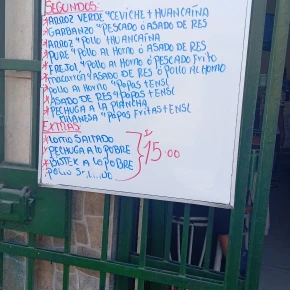 SEGUNDOS:
*ARROZ VERDE "CEVICHE + HUANCAÍNA
*GARBANZO "PESCADO ó ASADO DE RES
*ARROZ "Pollo THUANCAÍNA
*PURE "Pollo Al Horno ó ASADO DE RES
*FREJOL "Pollo Al Horno ó PESCADO Frito
*macarron "ASADO DE RES ó Pollo Al Horno
*Pollo Al Horno "Papas + ENSL
*ASADO DE RES "PAPAS + ENSL
*PECHUGA A LA PLANCHA
MILANESA "PAPAS Fritas + ENSL
EXTRAS:
*LOMO SALTADO
*PECHUGA A LO POBRE
*BISTEK A LO POBRE
15.00